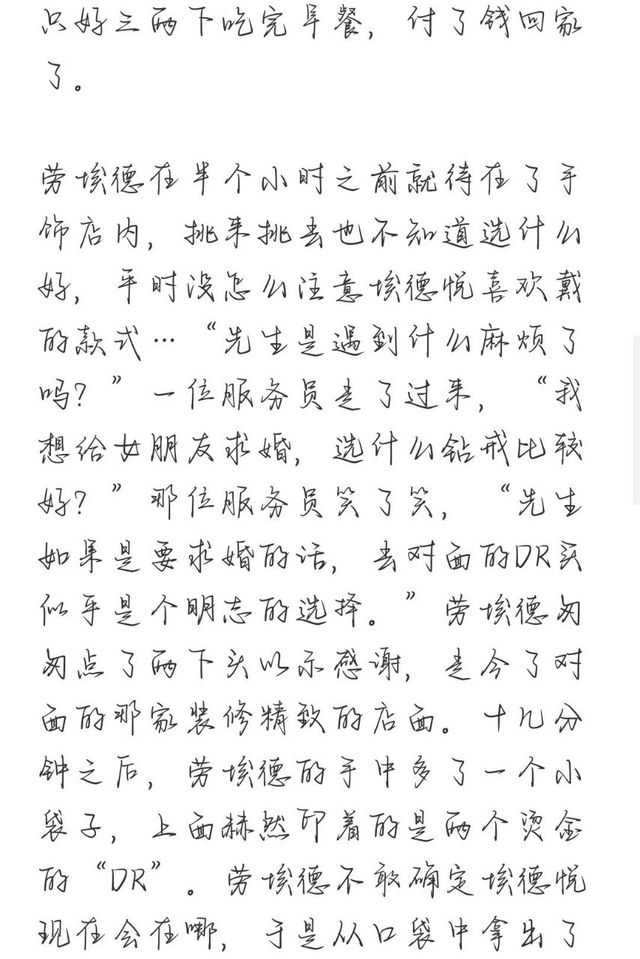 只好三两下吃完早餐，付了钱回家
了。
劳埃德在半个小时之前就待在了手
饰店内，挑来挑去也不知道选什么
好，平时没怎么注意埃德悦喜欢戴
的款式…“先生是遇到什么麻烦了
吗？”一位服务员走了过来，“我
想给女朋友求婚，选什么钻戒比较
好？”那位服务员笑了笑，“先生
如果是要求婚的话，去对面的DR买
似乎是个明志的选择。”劳埃德匆
匆点了两下头以示感谢，走今了对
面的那家装修精致的店面。十几分
钟之后，劳埃德的手中多了一个小
袋子，上面赫然印着的是两个烫金
的“DR”。劳埃德不敢确定埃德悦
现在会在哪，于是从口袋中拿出了